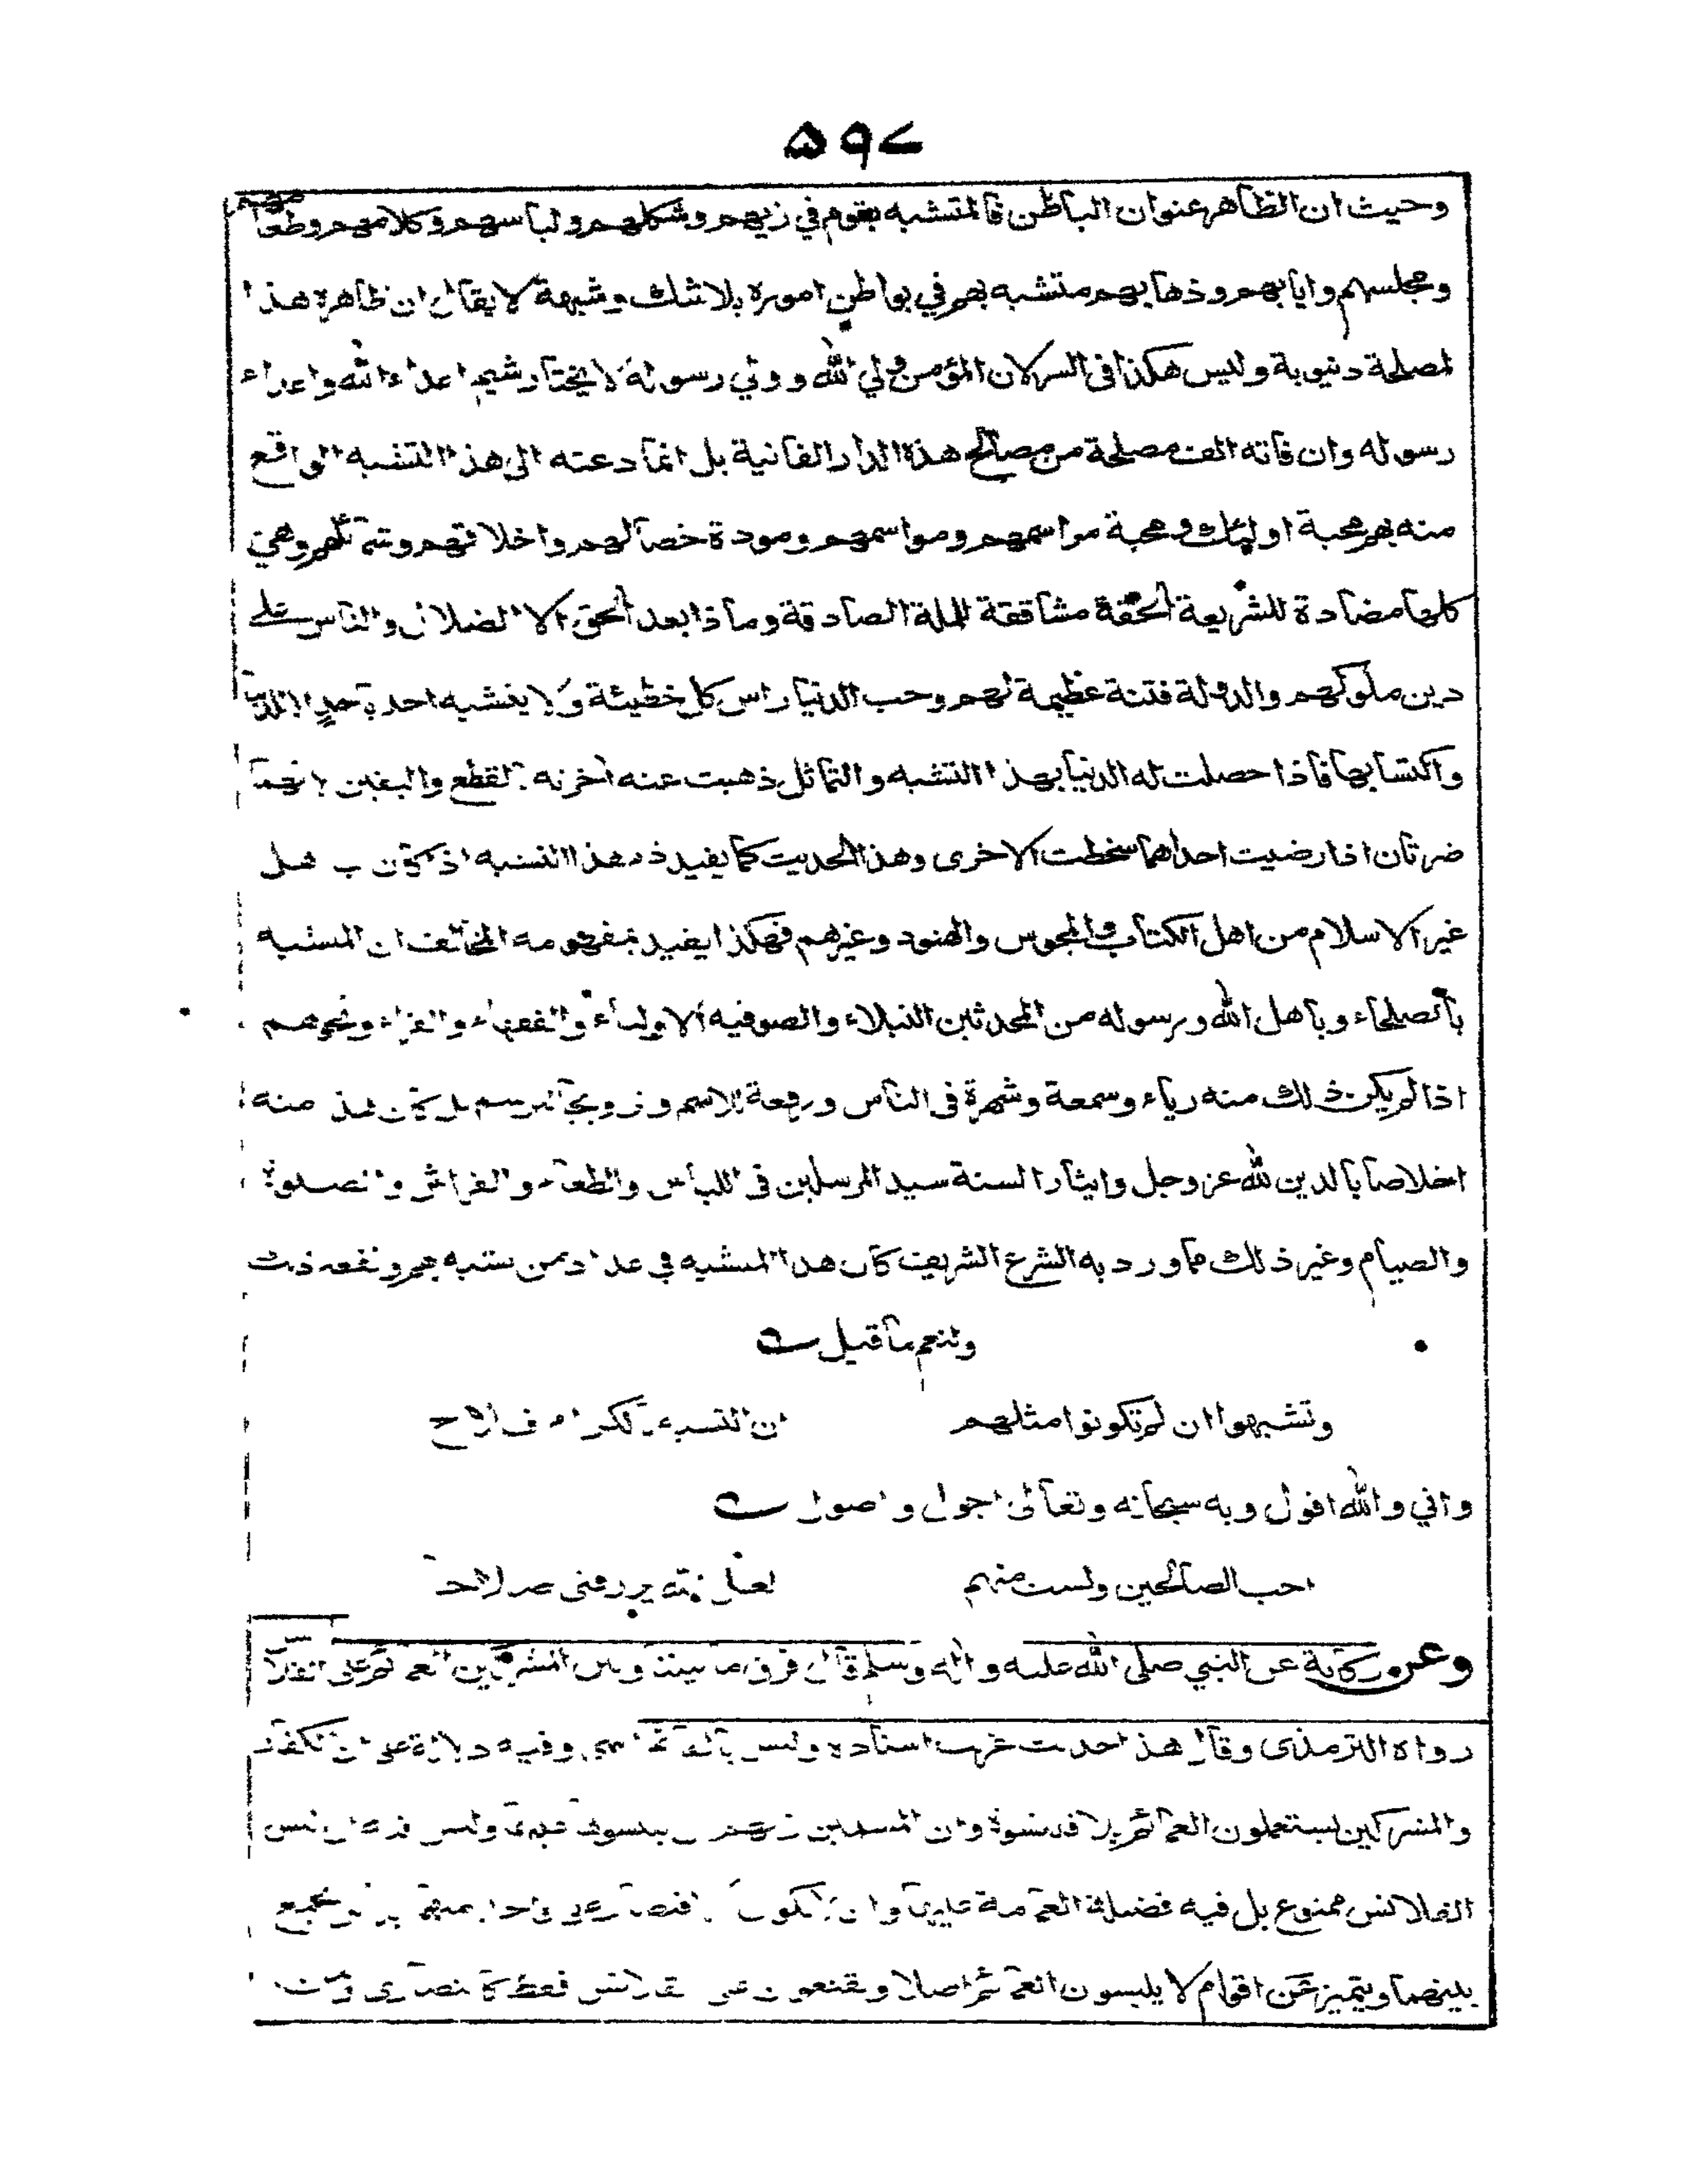 ۵۹۷
وحيث ان الظاهر عنوان الباطن فالمتشبه بقوم في زيهم وشكلهم ولباسهم وكلامهم وطعامهم
ومجلسهم وايابهم وذهابهم متشبه بهم في بواطن اموره بلا شك وشبهة لا يقال ان ظاهره هذا
لمصلحة دنيوية وليس هكذا فى السر لان المؤمن ولي الله وولي رسوله لا يختار شيم اعداء الله واعداء
رسوله وان فاته الف مصلحة من مصالح هذه الدار الفانية بل انما دعته الى هذا التشبه الواقع
منه بهم محبة اولئك ومحبة مراسمهم ومواسمهم ومودة خصالهم واخلاقهم وشمائلهم وهي
كلها مضادة للشريعة الحقة مشاققة للملة الصادقة وماذا بعد الحق الا الضلال والناس على
دين ملوكهم والدولة فتنة عظيمة لهم وحب الدنيا راس كل خطيئة ولا يتشبه احد باحد الا للدنيا
واكتسابها فاذا حصلت له الدنيا بهذا التشبه والتماثل ذهبت عنه اخرته بالقطع واليقين لانهما
ضرتان اذا رضيت احداهما سخطت الاخرى وهذا الحديث كما يفيد ذم هذا التشبه اذا كان باهل
غير الاسلام من اهل الكتاب والمجوس والهنود وغيرهم فهكذا يفيد بمفهومه المخالف ان المتشبه
بالصلحاء وباهل الله ورسوله من المحدثين النبلاء والصوفية الاولياء والفقهاء والقراء ونحوهم
اذا لم يكن ذلك منه رياء وسمعة وشهرة فى الناس ورفعة للاسم وترويجا للرسم بل كان هذا منه
اخلاصا بالدين لله عز وجل وايثارا لسنة سيد المرسلين فى اللباس والطعام والفراش والصلوة
والصيام وغير ذلك مما ورد به الشرع الشريف كان هذا المتشبه في عداد من تشبه بهم ونفعه ذلك
ولنعم ما قيل
وتشبهوا ان لم تكونوا مثلهم ان التشبه بالكرام فلاح
واني والله اقول وبه سبحانه وتعالى اجول واصول
احب الصالحين ولست منهم لعل الله يرزقنى صلاحا
وعن ركانة عن النبي صلى الله عليه واله وسلم قال فرق ما بيننا وبين المشركين العمائم على القلانس
رواه الترمذى وقال هذا حديث غريب اسناده وليس بالقائم وفيه دلالة على ان الكفار
والمشركين يستعملون العمائم بلا قلنسوة وان المسلمين وليس فيه ان لبس
القلانس ممنوع بل فيه فضيلة العمامة عليها وان لا يكون يجمع
بينهما ويتميز عن اقوام لا يلبسون العمائم اصلا ويقنعون على القلانس فقط كالنصارى